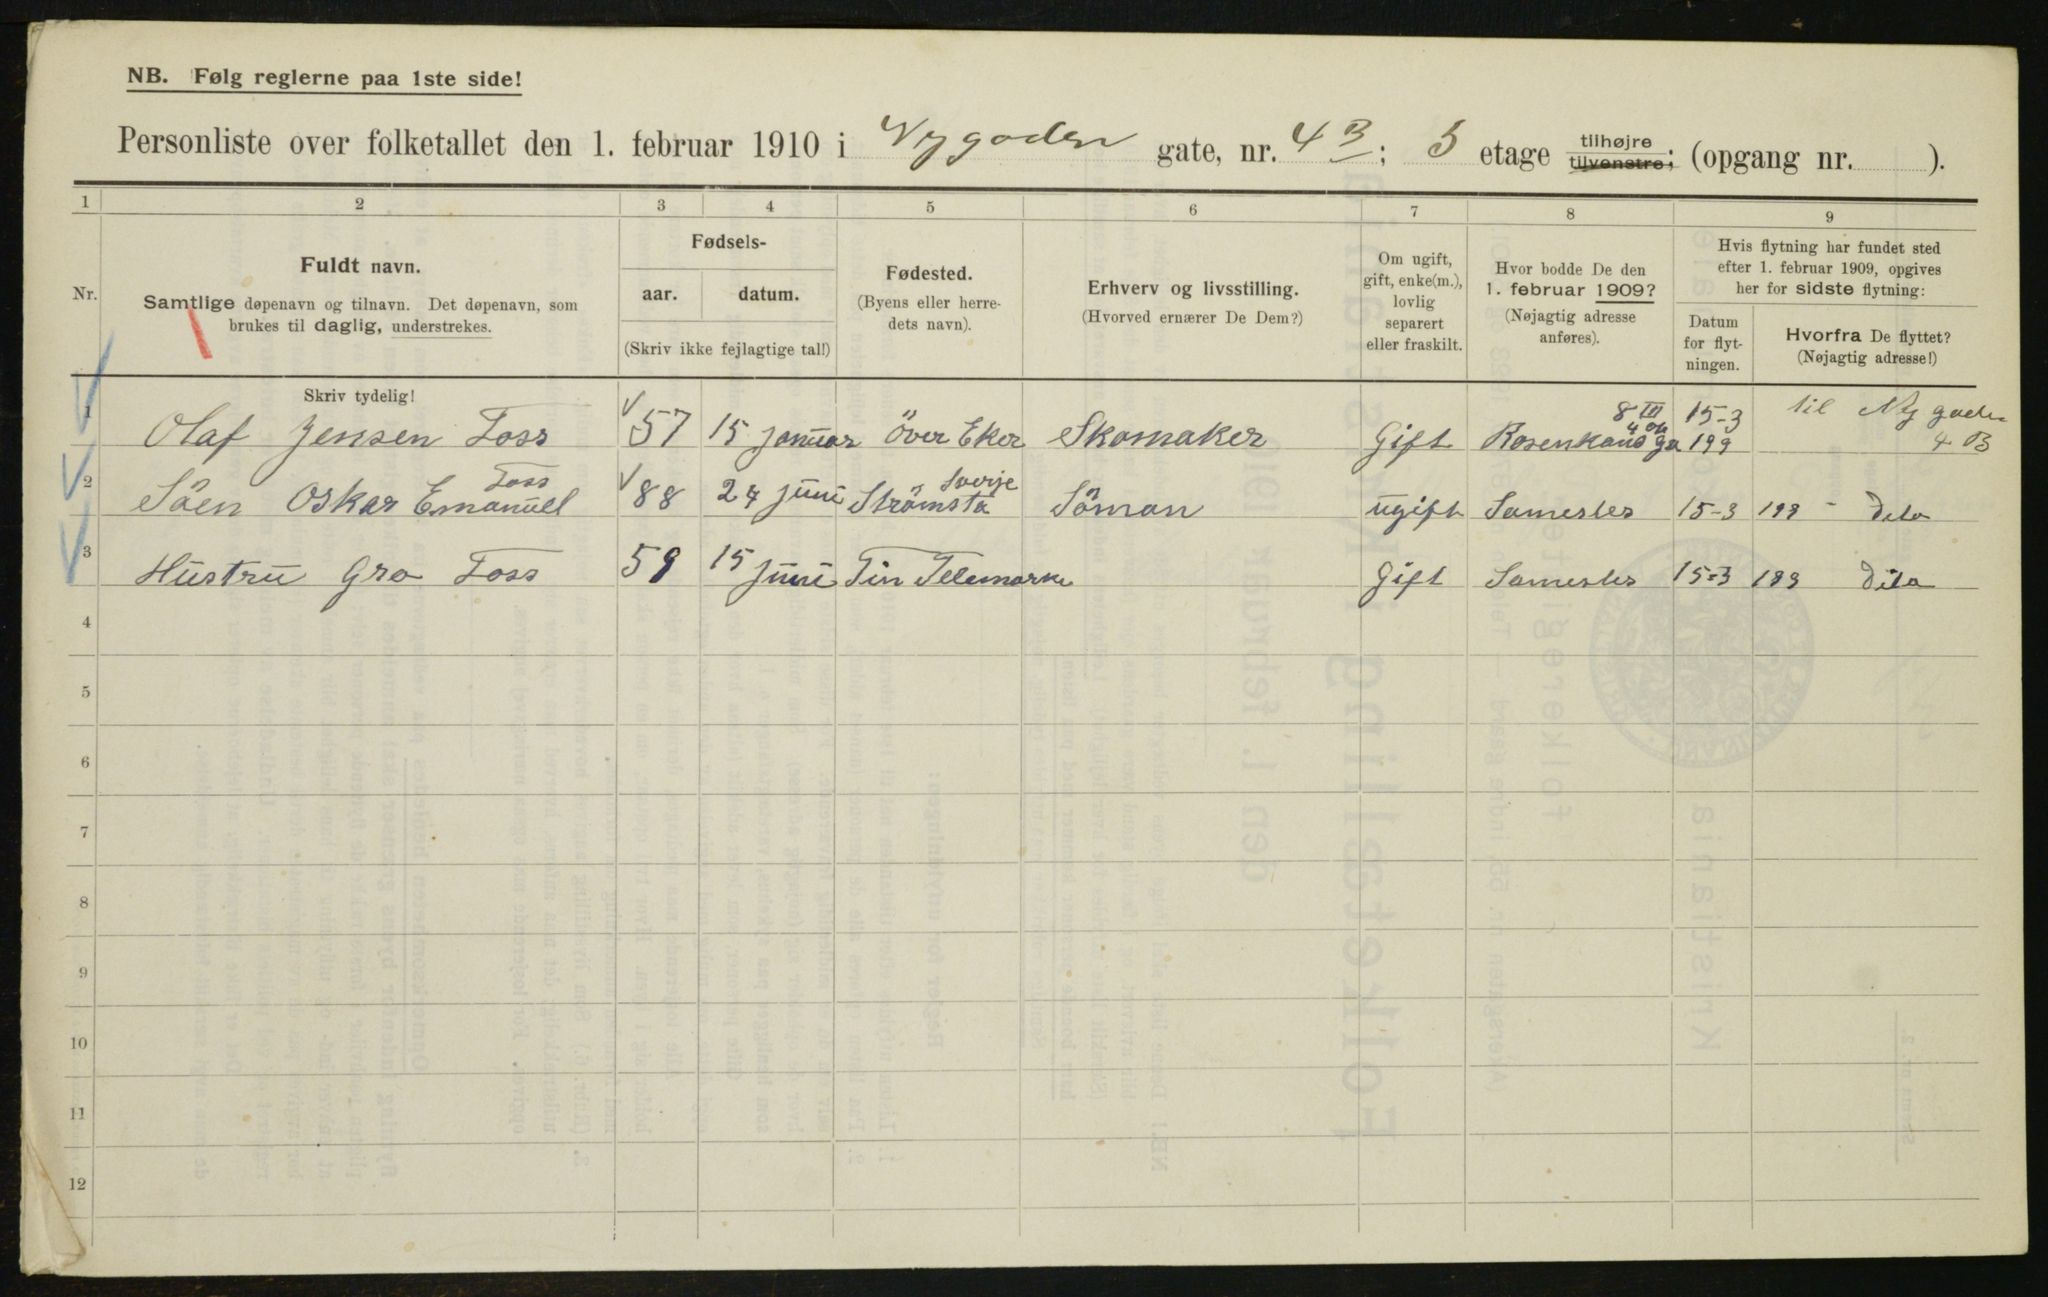 NB. Følg reglerne paa 1ste side!
Personliste over folketallet den 1. februar 1910 i Nygaden gate, nr. 4 B; 3 etage tilhøjre tilvenstre; (opgang nr. ).
1 2 3 4 5 6 7 8 9
Nr.
Fuldt navn.
Samtlige døpenavn og tilnavn. Det døpenavn, som
brukes til daglig, understrekes.
Fødsels-
aar. datum.
(Skriv ikke fejlagtige tal!)
Fødested.
(Byens eller herre-
dets navn).
Erhverv og livsstilling.
(Hvorved ernærer De Dem?)
Om ugift,
gift, enke(m.),
lovlig
separert
eller fraskilt.
Hvor bodde De den
1. februar 1909?
(Nøjagtig adresse
anføres).
Hvis flytning har fundet sted
efter 1. februar 1909, opgives
her for sidste flytning:
Datum
for flyt-
ningen.
Hvorfra De flyttet?
(Nøjagtig adresse!)
Skriv tydelig!
1 Olaf Jensen Foss 57 15 januar över Eker Skomaker Gift Rosenkans ga 8 III 15-3 199 til Ny gaden 4 B
2 Söen Oskar Emanuel Foss 88 24 juni Strömsta Sverje Söman ugift Samesles 15-3 199 - Dito
3 Hustru Gro Foss 59 15 juni Tin Telemarken Gift Samesles 15-3 199 Dito
4
5
6
7
8
9
10
11
12